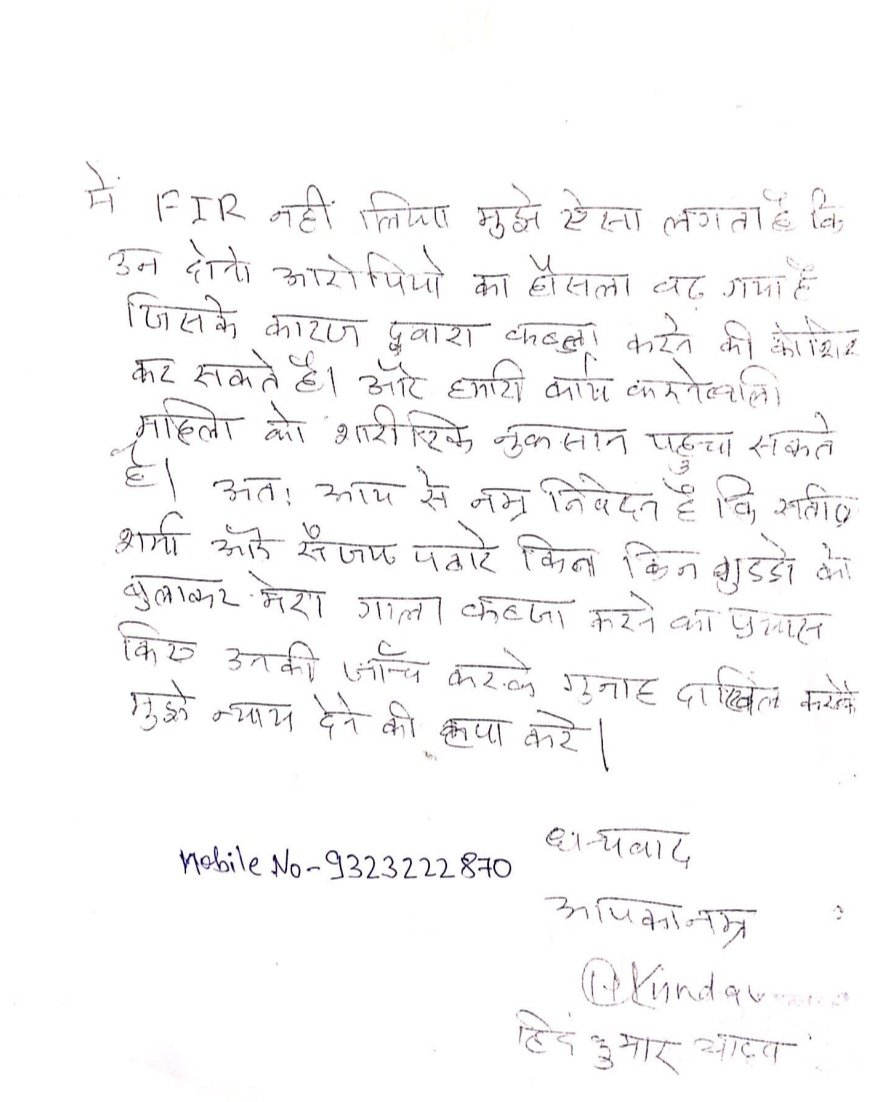 में FIR नहीं लिया मुझे ऐसा लगता है कि
उन दोनो आरोपियो का हौसला बढ़ गया है
जिसके कारण दुवारा कब्जा करने की कोशिश
कर सकते है। और हमारी कार्य करनेवाली
महिला को शारीरिक नुकसान पहुचा सकते
है। अतः आप से नम्र निवेदन है कि सतीश
शर्मा और संजय पवारे किन किन गुडडो को
बुलाकर मेरा गाला कब्जा करने का प्रयास
किए उनकी जाँच करके गुनाह दाखिल करके
मुझे न्याय देने की कृपा करे।
Mobile No-9323222870
धन्यवाद
आपका नम्र
हिंद कुमार यादव